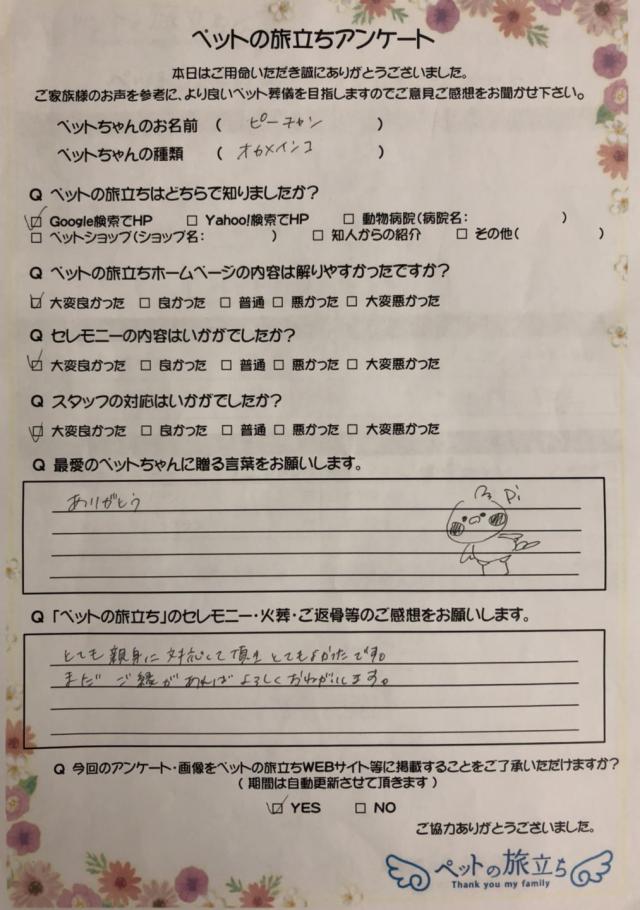 ペットの旅立ちアンケート
本日はご用命いただき誠にありがとうございました。
ご家族様のお声を参考に、より良いペット葬儀を目指しますのでご意見ご感想をお聞かせ下さい。
ペットちゃんのお名前 ( ピーチャン )
ペットちゃんの種類 ( オカメインコ )
Q ペットの旅立ちはどちらで知りましたか?
☑ Google検索でHP □ Yahoo!検索でHP □ 動物病院(病院名: )
□ ペットショップ(ショップ名: ) □ 知人からの紹介 □ その他( )
Q ペットの旅立ちホームページの内容は解りやすかったですか?
☑ 大変良かった □ 良かった □ 普通 □ 悪かった □ 大変悪かった
Q セレモニーの内容はいかがでしたか?
☑ 大変良かった □ 良かった □ 普通 □ 悪かった □ 大変悪かった
Q スタッフの対応はいかがでしたか?
☑ 大変良かった □ 良かった □ 普通 □ 悪かった □ 大変悪かった
Q 最愛のペットちゃんに贈る言葉をお願いします。
ありがとう
Pi
Q 「ペットの旅立ち」のセレモニー・火葬・ご返骨等のご感想をお願いします。
とても 親身に 対応して 頂き とてもよかったです。
まだ ご縁が あれば よろしくおねがいします。
Q 今回のアンケート・画像をペットの旅立ちWEBサイト等に掲載することをご了承いただけますか?
( 期間は自動更新させて頂きます )
☑ YES □ NO
ご協力ありがとうございました。
ペットの旅立ち
Thank you my family